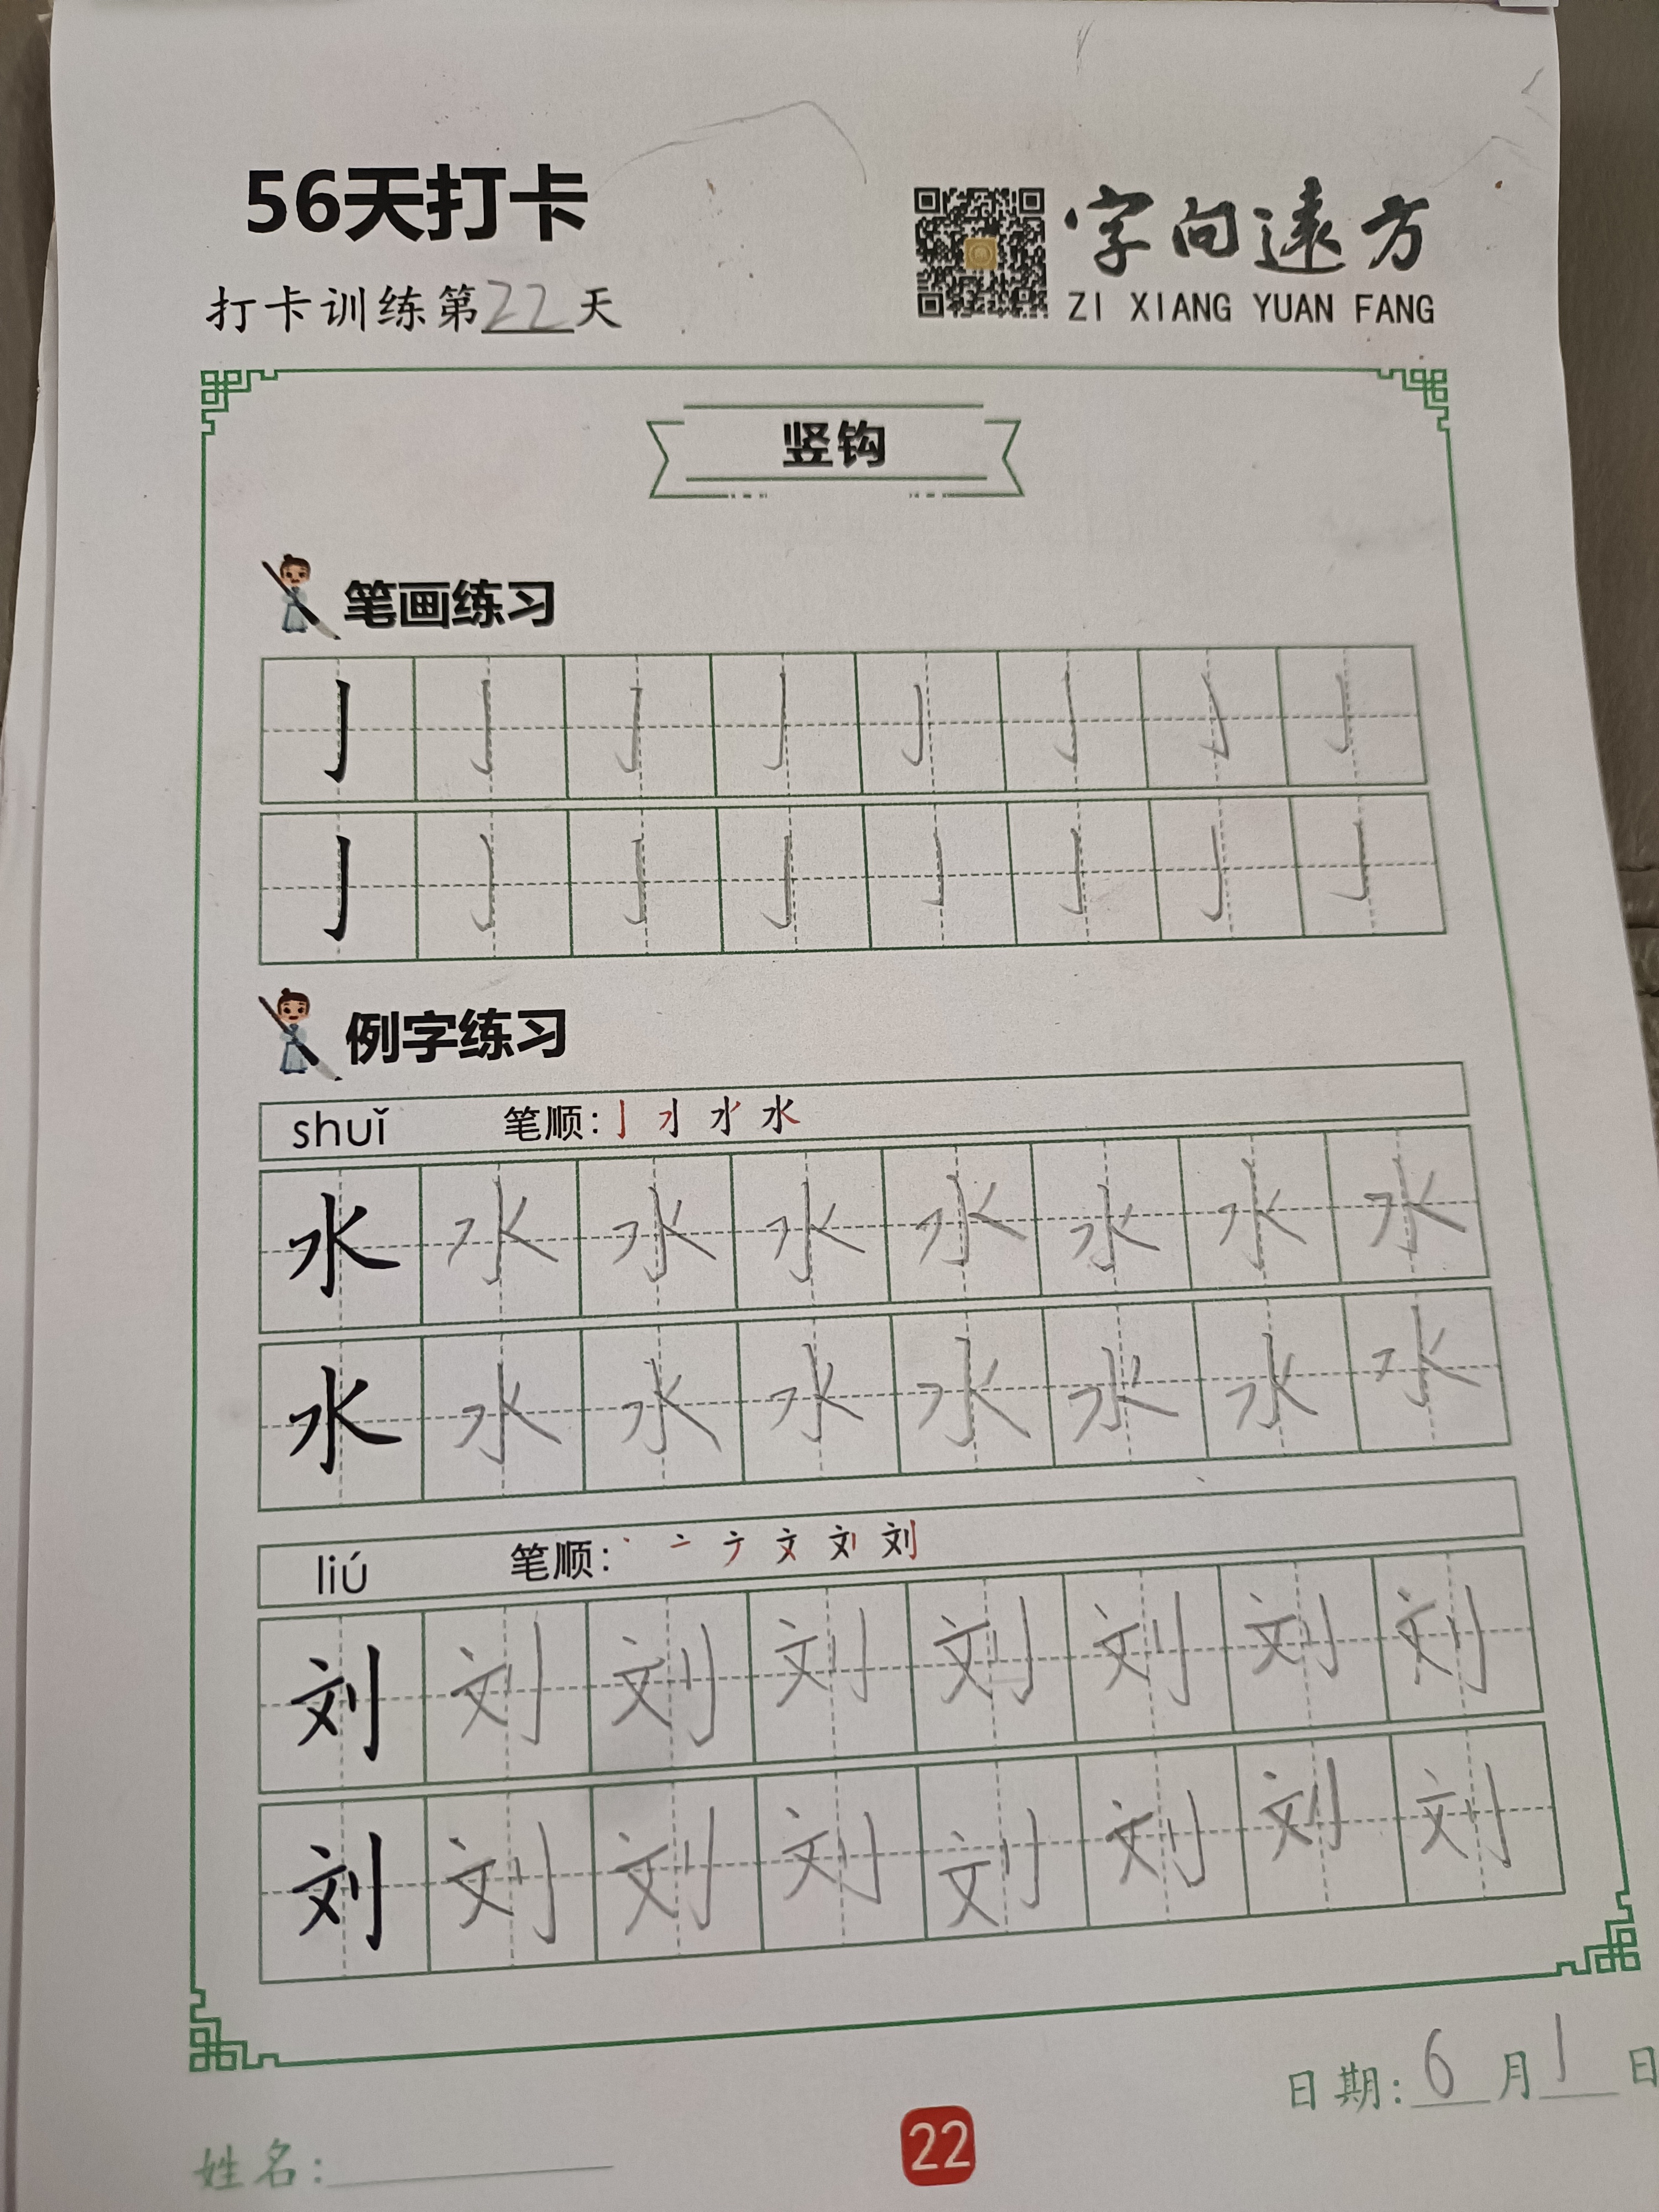 56天打卡
字向遠方
打卡训练第22天
ZI XIANG YUAN FANG
竖钩
笔画练习
亅 亅 亅 亅 亅 亅 亅 亅
亅 亅 亅 亅 亅 亅 亅 亅
例字练习
shuǐ 笔顺: 水
水 水 水 水 水 水 水 水
水 水 水 水 水 水 水 水
liú 笔顺: 丶 亠 文 刘
刘 刘 刘 刘 刘 刘 刘 刘
刘 刘 刘 刘 刘 刘 刘 刘
日期:6月1日
姓名:
22